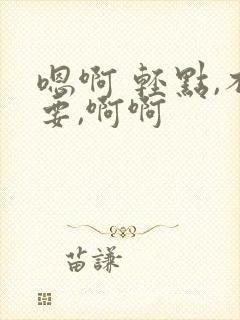 嗯啊 輕點,不
要,啊啊
苗謙